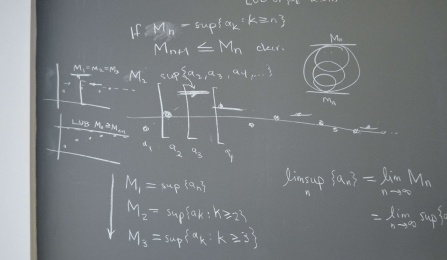 If Mn = sup{ak : k ≥ n}
Mn+1 ≤ Mn clear.
Mn
Mn
M1 = M2 = M3
M2 sup{a2, a3, a4, ...}
LUB Mn ≥ Mn+1
a1 a2 a3 a4
M1 = sup{an}
M2 = sup{ak : k ≥ 2}
M3 = sup{ak : k ≥ 3}
limsup {an} = lim Mn
n n→∞
= lim sup{a
n→∞